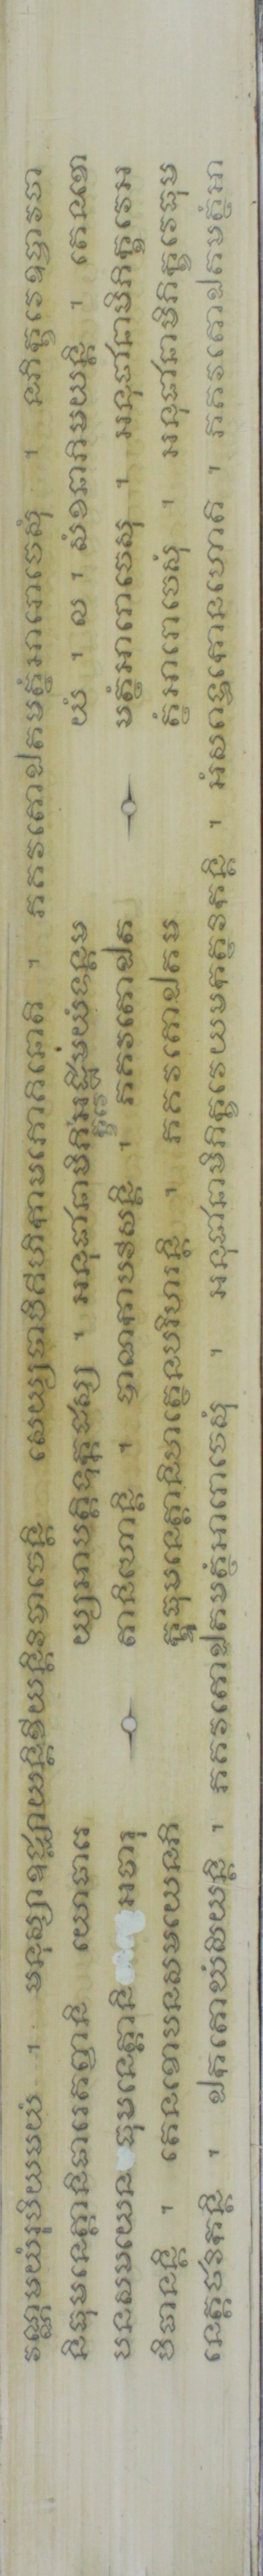 វណ្ណមយំរូបិយមយំ ។ មនុស្សាឧជ្ឈាយន្តិខីយន្តិវិបាចេន្តិ សេយ្យថាបិគិហិកាមភោគិនោតិ ។ ភគវតោឯតមត្ថំអារោចេសុំ ។ នភិក្ខវេឧច្ចាវចា
និធុមនេត្តានិធារេតព្វានិ យោធារេ យ្យអាបត្តិទុក្កដស្ស ។ អនុជានាមិភិក្ខវេអដ្ឋិមយំទន្តម យំ ។ ល ។ សំខនាភិមយន្តិ ។ តេនខោ
បនសមយេន ធុមនេត្តានិ អបារុ តានិហោន្តិ ។ បាណកាបវិសន្តិ ។ ភគវតោឯត មត្ថំអារោចេសុំ ។ អនុជានាមិភិក្ខវេអ
បិធានន្តិ ។ តេនខោបនសមយេនភិ ក្ខូធុមនេត្តានិហត្ថេនបរិហរន្តិ ។ ភគវតោឯតម ត្ថំអារោចេសុំ ។ អនុជានាមិភិក្ខវេធុម
នេត្តថវិកន្តិ ។ ឯកតោឃំសិយន្តិ ។ ភគវតោឯតមត្ថំអារោចេសុំ ។ អនុជានាមិភិក្ខវេយមកត្ថវិកន្តិ ។ អំសពទ្ធកោនហោតិ ។ ភគវតោឯតមត្ថំអា